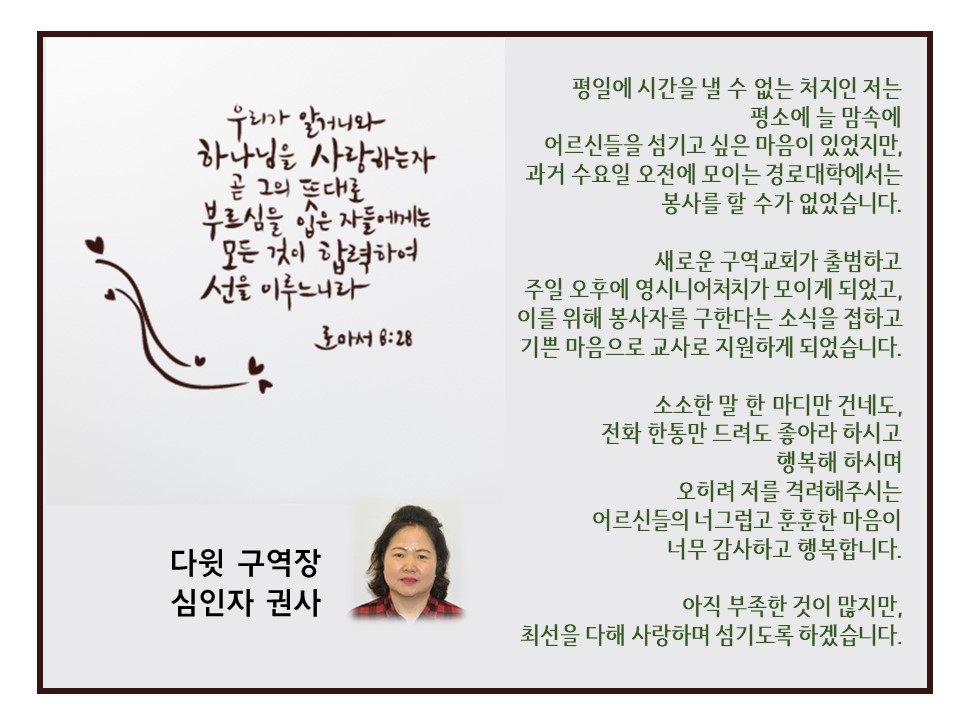 우리가 알거니와
하나님을 사랑하는자
곧 그의 뜻대로
부르심을 입은 자들에게는
모든 것이 합력하여
선을 이루느니라
로마서 8:28
다윗 구역장
심인자 권사
평일에 시간을 낼 수 없는 처지인 저는
평소에 늘 맘속에
어르신들을 섬기고 싶은 마음이 있었지만,
과거 수요일 오전에 모이는 경로대학에서는
봉사를 할 수가 없었습니다.
새로운 구역교회가 출범하고
주일 오후에 영시니어처치가 모이게 되었고,
이를 위해 봉사자를 구한다는 소식을 접하고
기쁜 마음으로 교사로 지원하게 되었습니다.
소소한 말 한 마디만 건네도,
전화 한통만 드려도 좋아라 하시고
행복해 하시며
오히려 저를 격려해주시는
어르신들의 너그럽고 훈훈한 마음이
너무 감사하고 행복합니다.
아직 부족한 것이 많지만,
최선을 다해 사랑하며 섬기도록 하겠습니다.